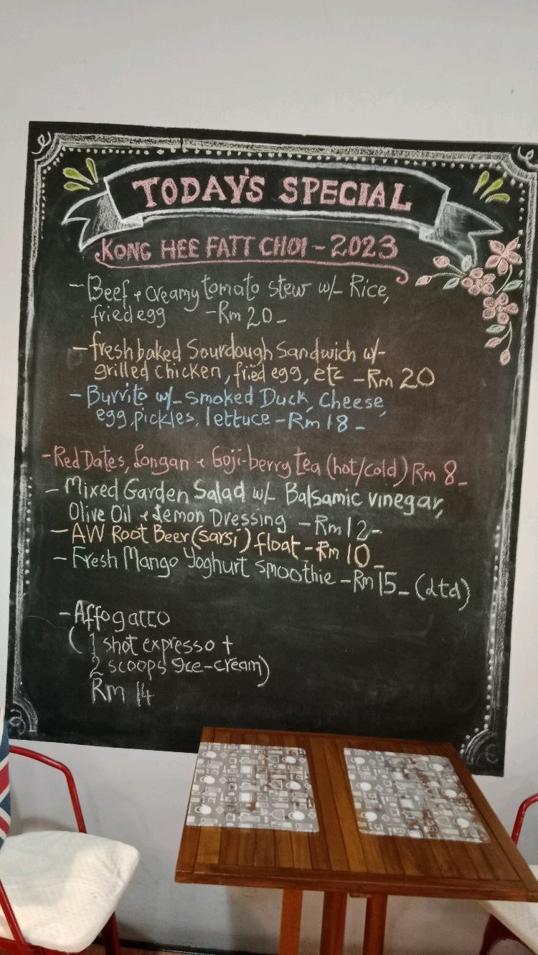 TODAY'S SPECIAL
KONG HEE FATT CHOI - 2023
- Beef + Creamy tomato stew w/ Rice,
fried egg - Rm 20 -
- fresh baked Sourdough Sandwich w/-
grilled chicken, fried egg, etc - Rm 20
- Burrito w/- smoked Duck, Cheese,
egg, pickles, lettuce - Rm 18 -
- Red Dates, Longan + Goji-berry tea (hot/cold) Rm 8 -
- Mixed Garden Salad w/ Balsamic vinegar,
Olive Oil + Lemon Dressing - Rm 12 -
- AW Root Beer (sarsi) float - Rm 10 -
- Fresh Mango Yoghurt smoothie - Rm 15 - (dtd)
- Affogatto
( 1 shot expresso +
2 scoops Ice-cream)
Rm 14